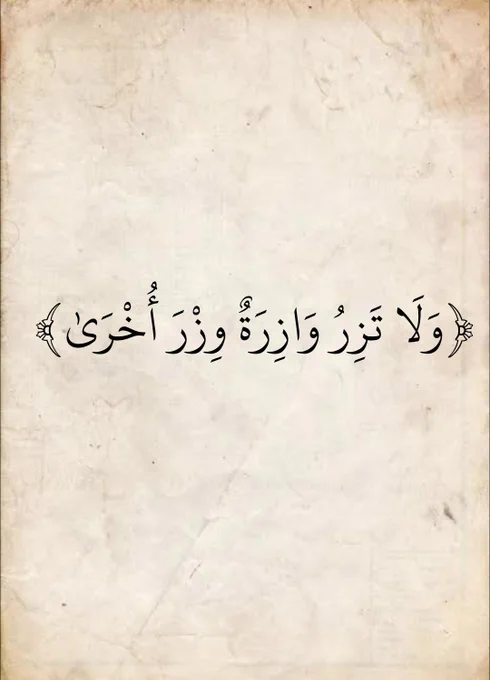 ﴿وَلَا تَزِرُ وَازِرَةٌ وِزْرَ أُخْرَىٰ﴾